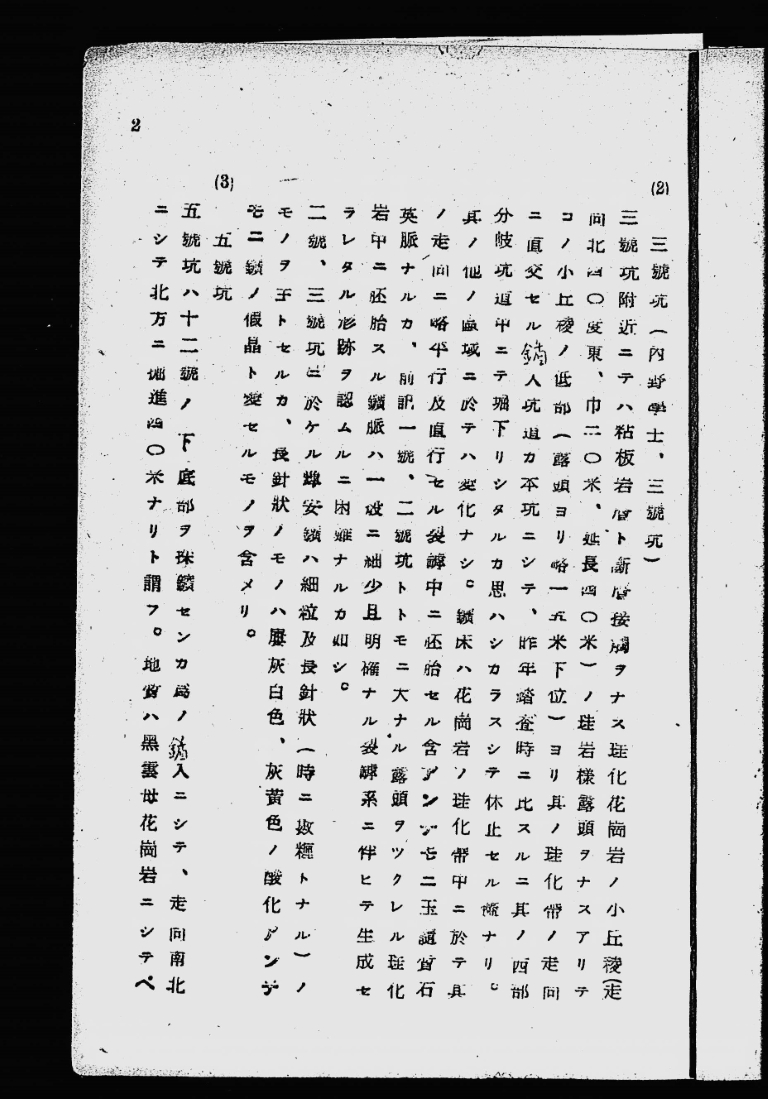 2
(2)
三號坑(內野學士、三號坑)
三號坑附近ニテハ粘板岩層ト斷層接觸ヲナス珪化花崗岩ノ小丘稜(走
向北四〇度東、巾二〇米、延長四〇米)ノ珪岩樣露頭ヲナスアリテ
コノ小丘稜ノ低部(露頭ヨリ略一五米下位)ヨリ其ノ珪化帶ノ走向
ニ直交セル鑛入坑道カ本坑ニシテ、昨年踏査時ニ比スルニ其ノ西部
分岐坑道中ニテ堀下リシタルカ思ハシカラスシテ休止セル儘ナリ。
其ノ他ノ區域ニ於テハ變化ナシ。鑛床ハ花崗岩ノ珪化帶中ニ於テ其
ノ走向ニ略平行及直行セル裂罅中ニ胚胎セル含アンチモニ玉髓質石
英脈ナルカ、前記一號、二號坑トトモニ大ナル露頭ヲツクレル珪化
岩中ニ胚胎スル鑛脈ハ一般ニ細少且明確ナル裂罅系ニ伴ヒテ生成セ
ラレタル形跡ヲ認ムルニ困難ナルカ如シ。
二號、三號坑ニ於ケル輝安鑛ハ細粒及長針狀(時ニ 糎トナル)ノ
モノヲ主トセルカ、長針狀ノモノハ屢灰白色、灰黃色ノ酸化アンチ
モニ鑛ノ假晶ト變セルモノヲ含メリ。
(3)
五號坑
五號坑ハ十二號ノ下底部ヲ採鑛センカ爲ノ 入ニシテ、走向南北
ニシテ北方ニ掘進四〇米ナリト謂フ。地質ハ黑雲母花崗岩ニシテペ